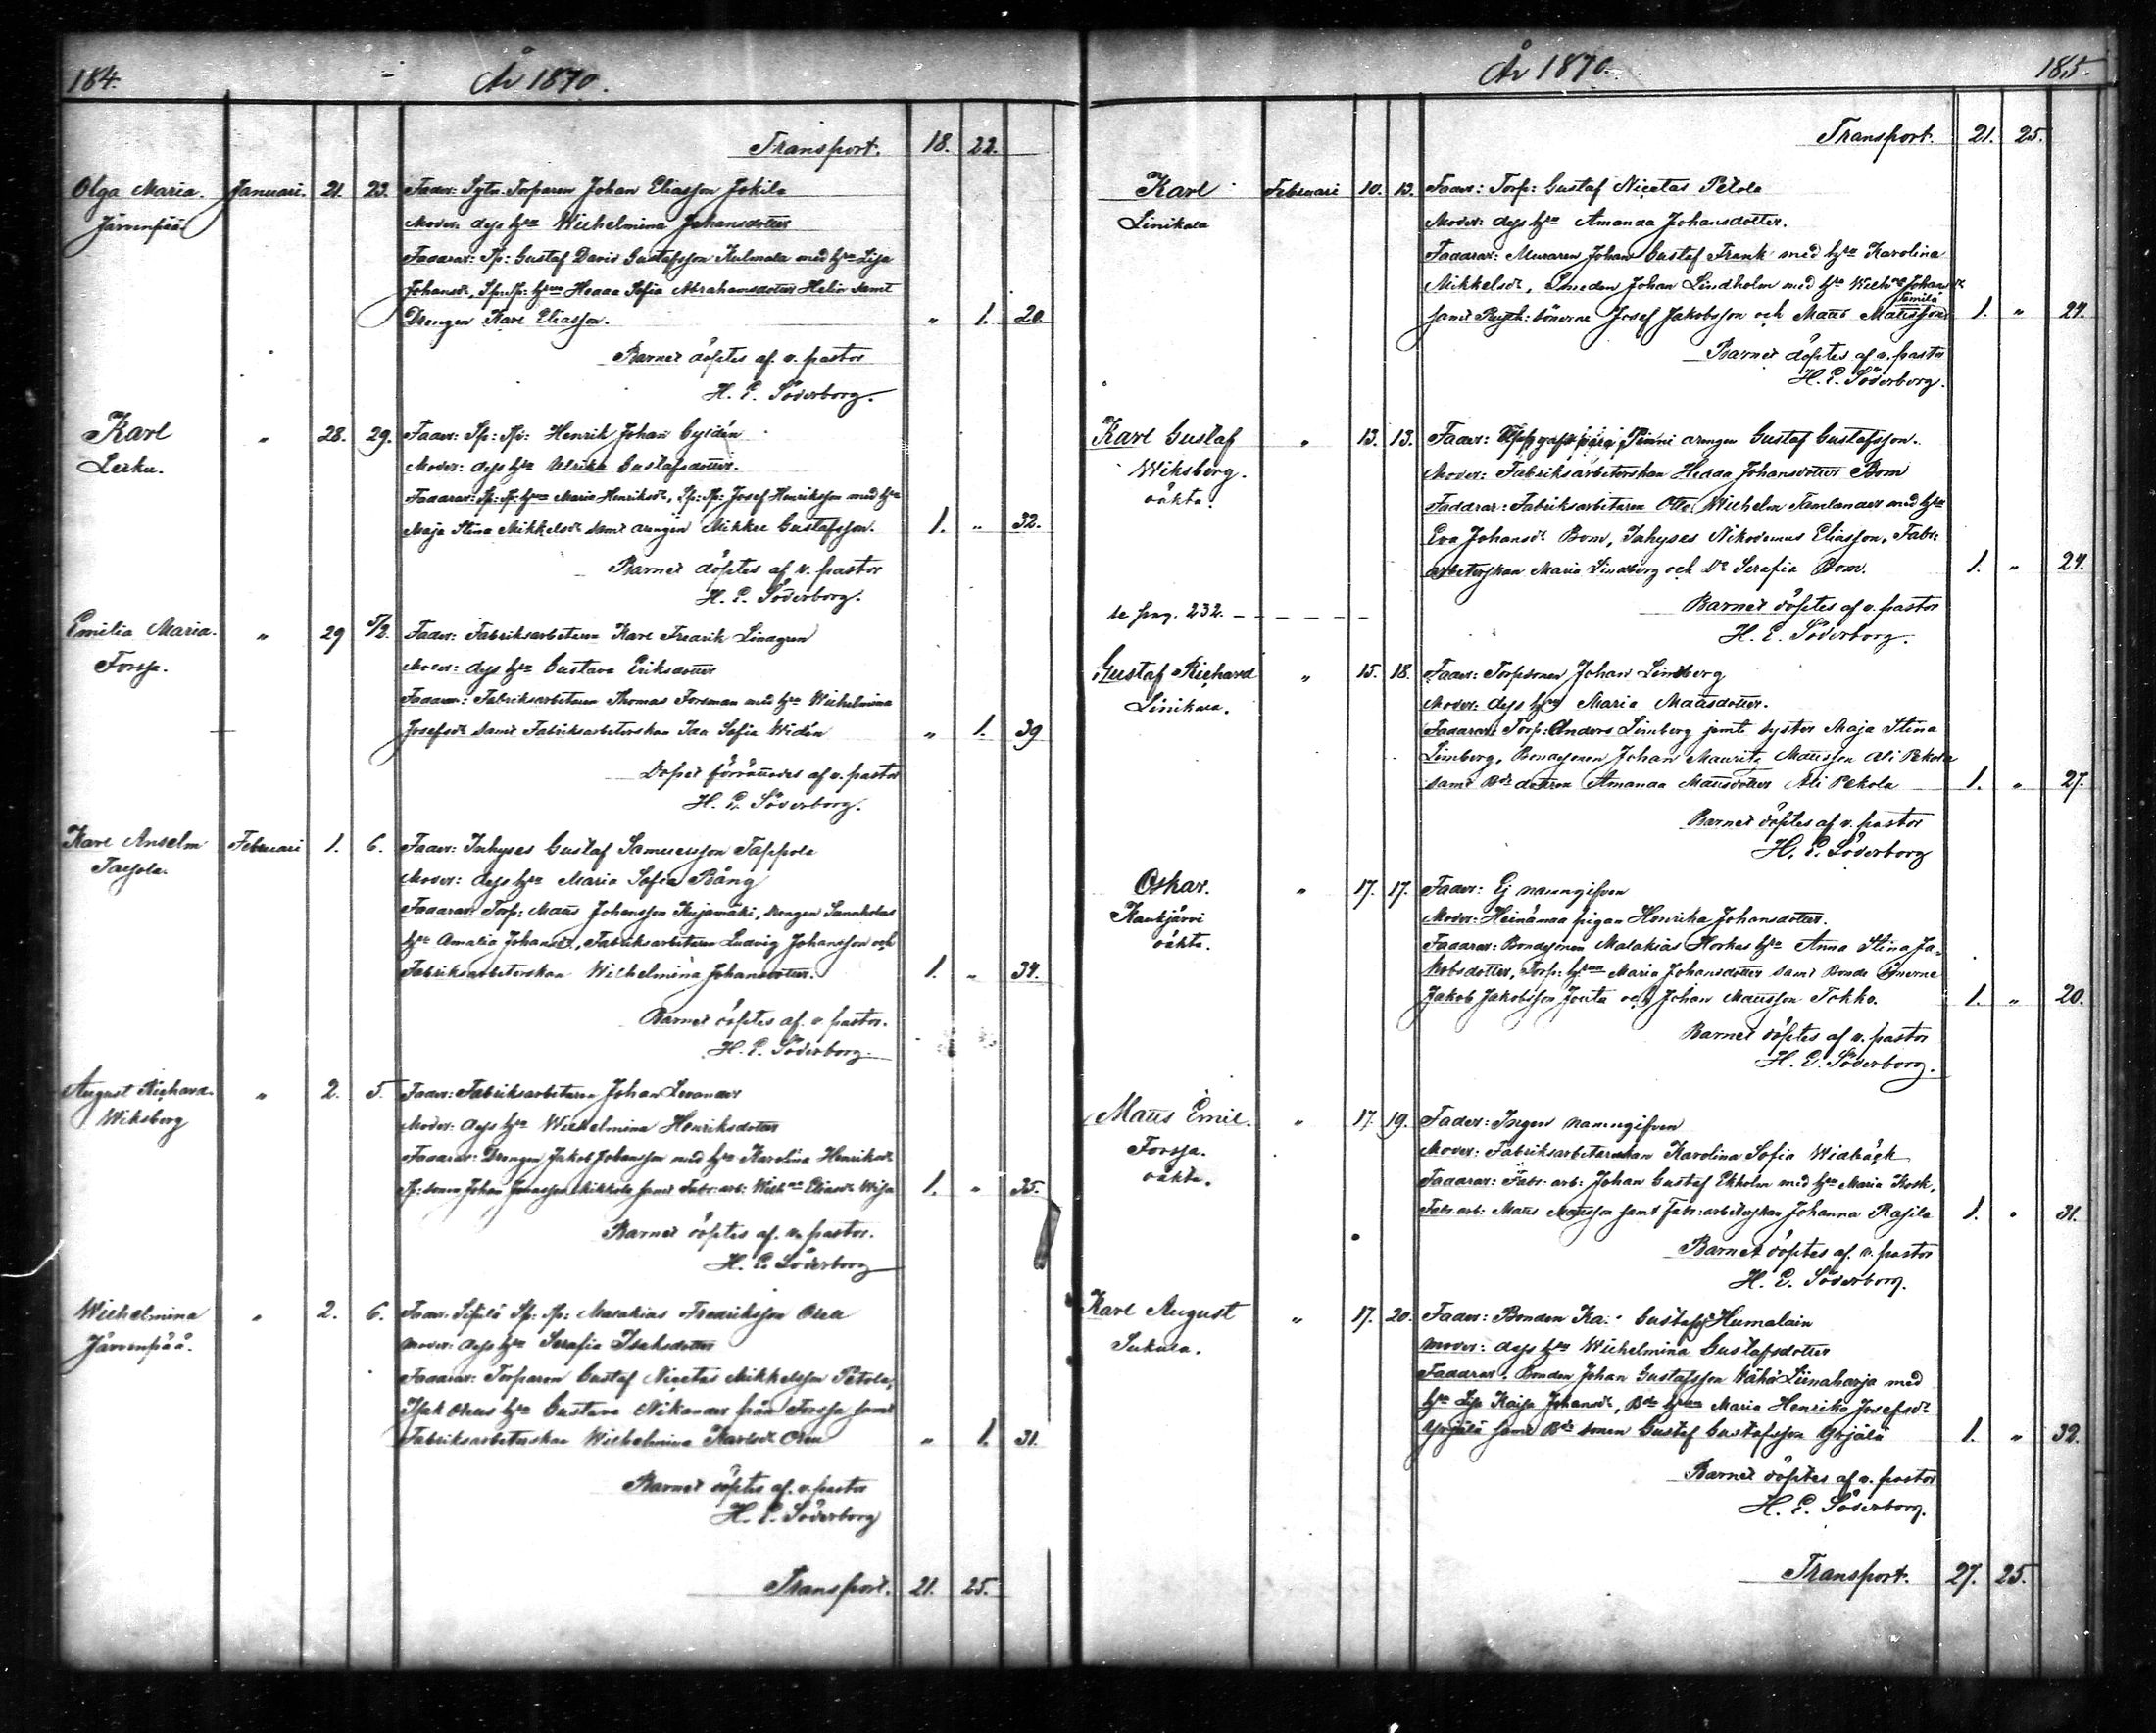 184.
År 1870.
Transport. 18. 22.
Olga Maria. Januari. 21. 23. Fader: Sytn. Torparen Johan Eliasson Jokila
Järvenpää Moder: dess h:u Wilhelmina Johansdotter
Faddrar: Sp: Gustaf David Gustafsson Kulmala med h:u Lisa
Johansd:r, Sp: Sp: h:un Hedda Sofia Abrahamsdotter Helin samt
Drengen Karl Eliasson. " 1. 20.
Barnet döptes af. v. pastor
H. E. Söderborg.
Karl " 28. 29. Fader: Sp: Sp: Henrik Johan Gyldén
Lerku. Moder: dess h:u Ulrika Gustafsdotter.
Faddrar: Sp: Sp: h:un Maria Henriksd:r, Sp: Sp: Josef Henriksson med h:u
Maja Stina Mikkelsd:r samt drengen Mikkel Gustafsson. 1. " 32.
Barnet döptes af v. pastor
H. E. Söderborg.
Emilia Maria. " 29 5/2. Fader: Fabriksarbetaren Karl Fredrik Lindgren
Forssa. Moder: dess h:u Gustava Eriksdotter
Faddrar: Fabriksarbetaren Thomas Forsman med h:u Wilhelmina
Josefsd:r samt Fabriksarbeterskan Ida Sofia Widén " 1. 39
Dopet förrättades af v. pastor
H. E. Söderborg.
Karl Anselm Februari 1. 6. Fader: Inhyses Gustaf Samuelsson Tappola
Talsola. Moder: dess h:u Maria Sofia Bång
Faddrar: Torp: Matts Johansson Kujamäki, drengen Sannholas
h:u Amalia Johansd:r, Fabriksarbetaren Ludvig Johansson och
Fabriksarbeterskan Wilhelmina Johansdotter. 1. " 34.
Barnet döptes af. v. pastor.
H. E. Söderborg.
August Richard. " 2. 5. Fader: Fabriksarbetaren Johan Levander
Wiksberg Moder: dess h:u Wilhelmina Henriksdotter
Faddrar: Drengen Jakob Johansson med h:u Karolina Henriksd:r
Sp: sonen Johan Jonasson Mikkola samt Fabr: arb: Wilh:na Eliasd:r Wisa 1. " 35.
Barnet döptes af. v. pastor.
H. E. Söderborg
Wilhelmina " 2. 6. Fader: Sipilä Sp: Sp: Malakias Fredriksson Oren
Järvenpää. Moder: dess h:u Serafia Isaksdotter
Faddrar: Torparen Gustaf Nicetas Mikkelsson Pétola,
Isak Orens h:u Gustava Nikander från Forssa samt
Fabriksarbeterskan Wilhelmina Karlsd:r Oren " 1. 31.
Barnet döptes af. v. pastor
H. E. Söderborg
Transport. 21. 25.
År 1870.
185.
Transport. 21. 25.
Karl Februari 10. 13. Fader: Torp: Gustaf Nicetas Pétola
Linikala Moder: dess h:u Amanda Johansdotter.
Faddrar: Muraren Johan Gustaf Frank med h:u Karolina
Mikkelsd:r, Smeden Johan Lindholm med h:u Wilh:na Johansd:r
samt Rusth: sönerne Josef Jakobsson och Matts Mattsson Tamila 1. " 24.
Barnet döptes af v. pastor
H. E. Söderborg.
Karl Gustaf " 13. 13. Fader: drengen Gustaf Gustafsson.
Wiksberg. Moder: Fabriksarbeterskan Hedda Johansdotter Bom
oäkta. Faddrar: Fabriksarbetaren Otto Wilhelm Tamlander med h:u
Eva Johansd:r Bom, Inhyses Nikodemus Eliasson, Fabr:
arbeterskan Maria Lindberg och D:o Serafia Bom. 1. " 24.
Barnet döptes af v. pastor
se pag. 232.
H. E. Söderborg.
Gustaf Richard " 15. 18. Fader: Torpsonen Johan Limberg
Linikala. Moder: dess h:u Maria Mattsdotter.
Faddrar: Torp: Anders Limberg jemte syster Maja Stina
Limberg, Bondesonen Johan Mauritz Mattsson Ali Pekola
samt B:de dottren Amanda Mattsdotter Ali Pekola 1. " 27.
Barnet döptes af v. pastor
H. E. Söderborg
Oskar. " 17. 17. Fader: Ej namngifven
Kaukjärvi Moder: Heinämaa pigan Henrika Johansdotter.
oäkta. Faddrar: Bondesonen Malakias Horkas h:u Anna Stina Ja-
kobsdotter, Torp: h:un Maria Johansdotter samt Bonde sönerne
Jakob Jakobsson Jouta och Johan Mattsson Tokko. 1. " 20.
Barnet döptes af v. pastor
H. E. Söderborg.
Matts Emil. " 17. 19. Fader: Ingen namngifven
Forssa. Moder: Fabriksarbeterskan Karolina Sofia Widbäck
oäkta. Faddrar: Fabr: arb: Johan Gustaf Ekholm med h:u Maria Kosk,
Fabr: arb: Matts Mattsson samt Fabr: arbeterskan Johanna Rasila 1. " 31.
Barnet döptes af. v. pastor
H. E. Söderborg.
Karl August " 17. 20. Fader: Bonden Gustafss. Humalain
Sukula. Moder: dess h:u Wilhelmina Gustafsdotter
Faddrar: Bonden Johan Gustafsson Wähä Liinaharja med
h:u Lisa Kaisa Johansd:r, B:de h:un Maria Henrika Josefsd:r
Yrjälä samt B:de sonen Gustaf Gustafsson Yrjälä 1. " 32.
Barnet döptes af v. pastor
H. E. Söderborg.
Transport. 27. 25.